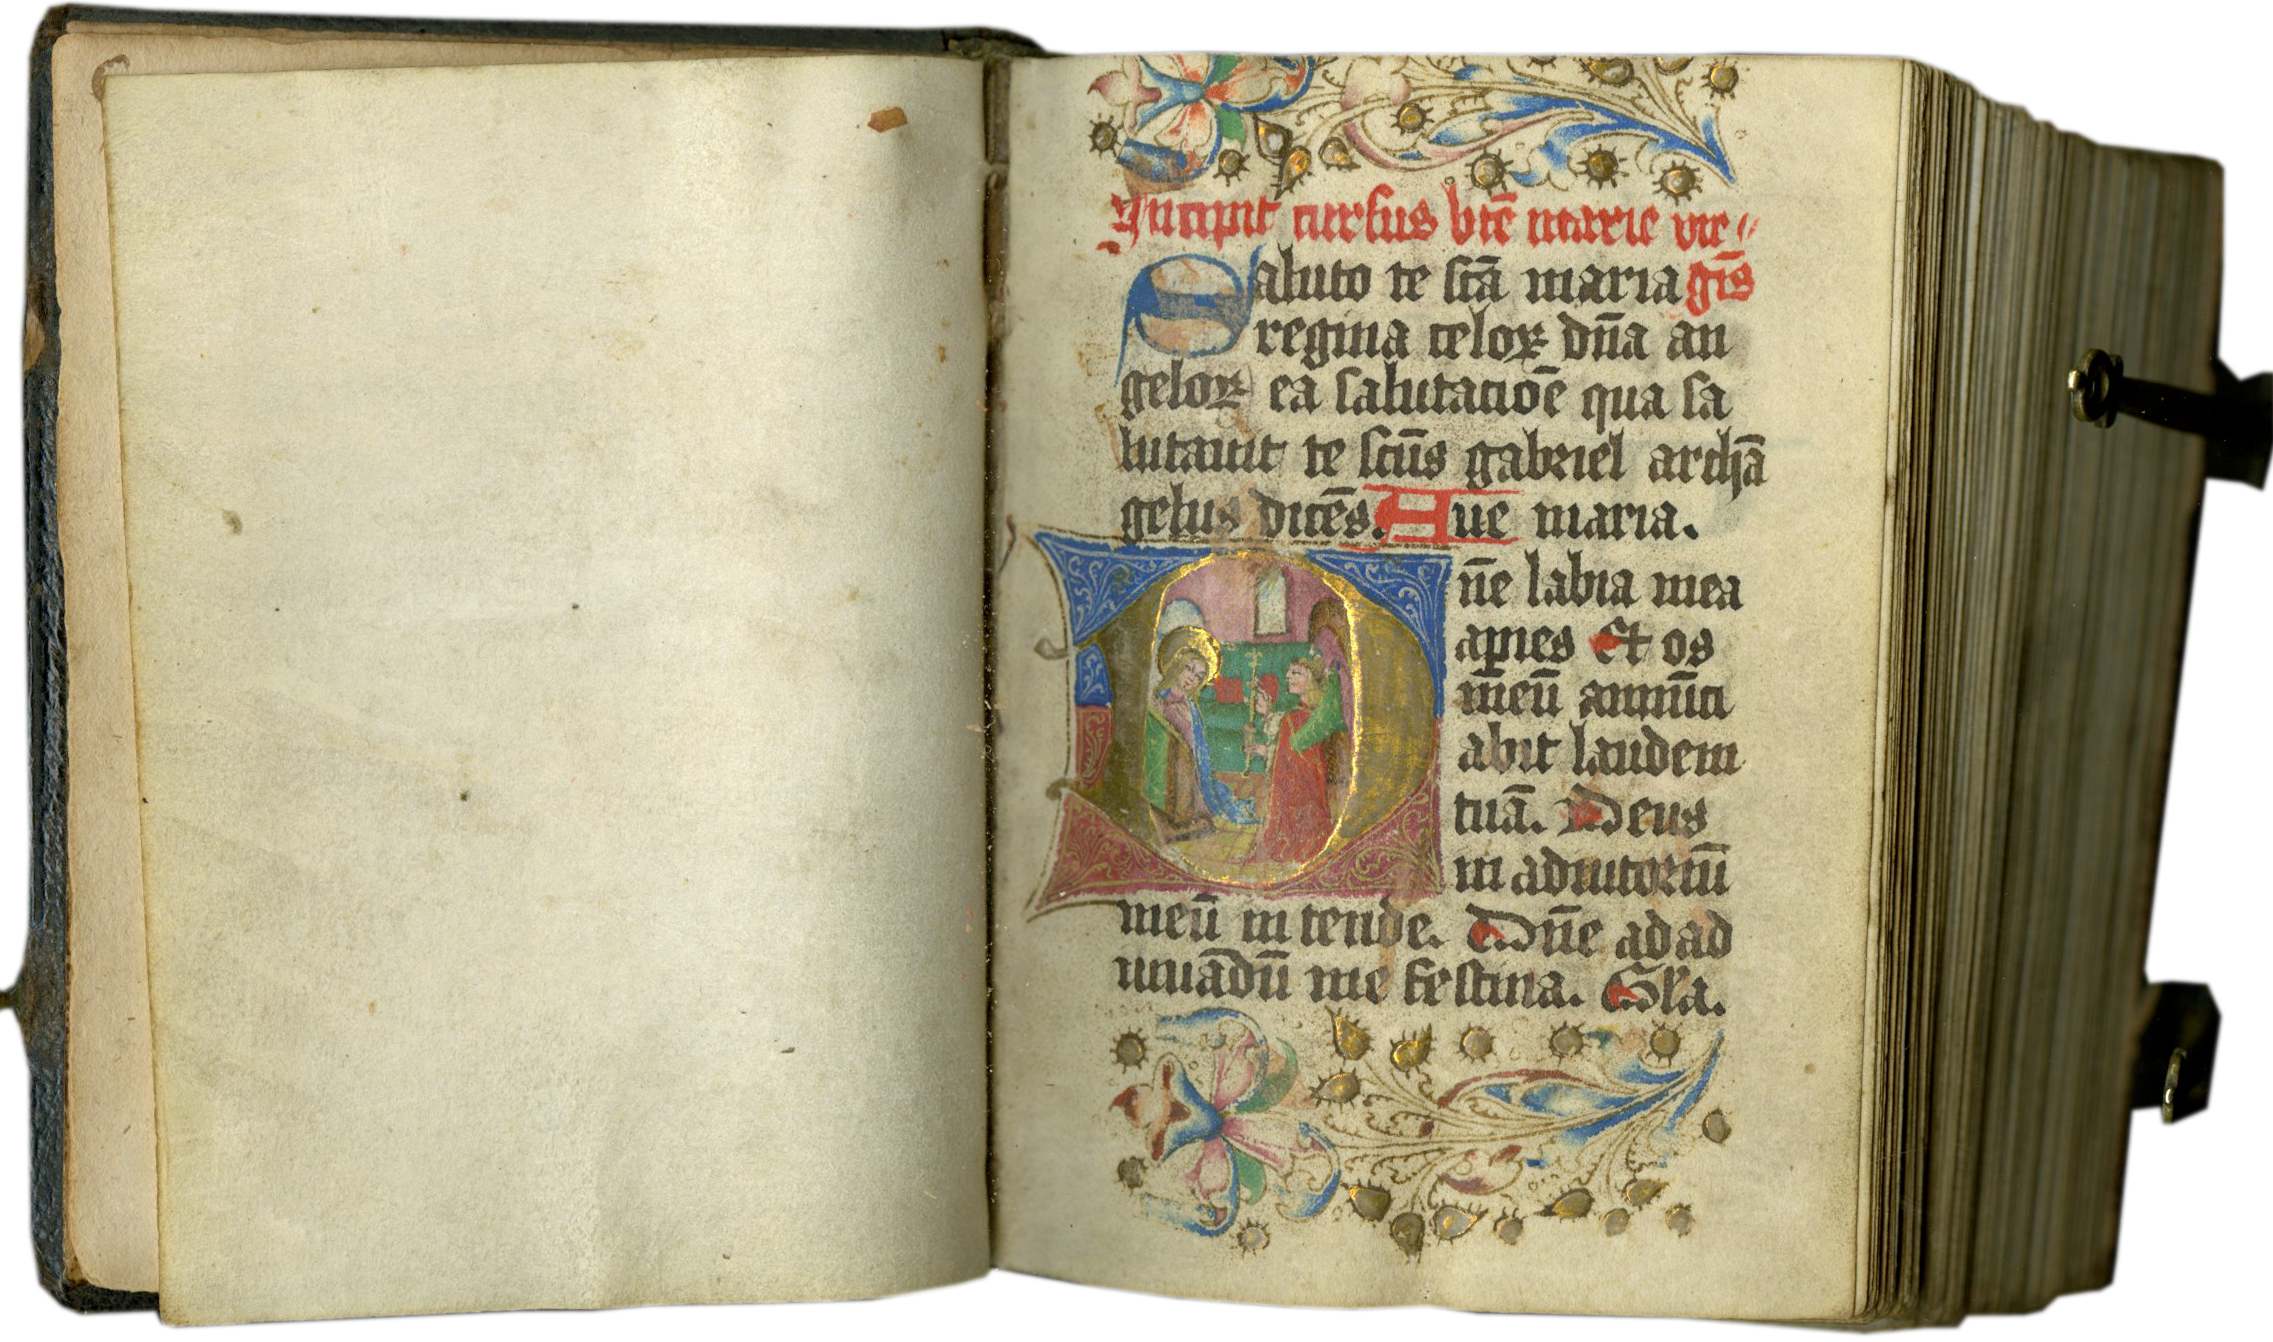 Incipit cursus bt̄e marie vir〃
Saluto te sc̄ā maria gīs
regina celoꝝ dn̄a an
geloꝝ ea salutacioē qua sa
lutauit te scūs gabriel archā
gelus dicēs. Aue maria.
Dn̄e labia mea
aꝑies Et os
meū annūci
abit laudem
tuā. Deus
in adiutoriū
meū in tende. Dn̄e ad ad
iuuādū me festina. Gl̄a.